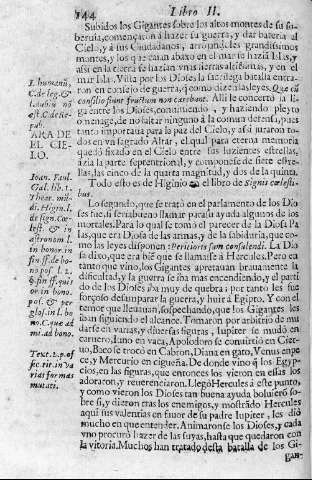 144 Libro II.
Subidos los Gigantes sobre los altos montes de su so-
beruia, començaron á hazer su guerra, y dar bateria al
Cielo, y á sus Ciudadanos, arrojando les grandissimos
montes, y los que caian abaxo en el mar se hazian Islas, y
assi en la tierra se hazian vnas sierras altissimas, y en el
mar Islas. Vista por los Dioses la
batalla entra-
ron en consejo de guerra,
como dizen las leyes. Que cū
consilio fiunt fructum non
Alli se concertó la li-
ga entre los Dioses,
y haziendo pleyto
omenage, de no faltar ninguno á la comun defensa, pues
tanto importaua para la paz del Cielo, y assi juraron to-
dos en vn sagrado Altar, el qual para eterna memoria
quedó fixado en el Cielo entre las luzientes estrellas,
ázia la parte septentrional, y componese de siete estre-
llas, las cinco de la quarta magnitud, y dos de la quinta.
Todo esto es de Higinio en el libro de Signis cœlesti-
bus.
Lo segundo, que se trató en el parlamento de los Dio
ses fue, si seria bueno llamar para su ayuda algunos de los
mortales. Para lo qual se tomó el parecer de la Diosa Pa
las, que era Diosa de las armas, y de la sabiduria, que co-
mo las leyes disponen: Peritiores sunt consulendi. La Dio
sa dixo, que era biē que se llamasse á Hercules. Pero en
tanto que vino, los Gigantes apretauan brauamente la
dificultad, y la guerra se iba mas encendiendo, y el parti
do de los Dioses iba muy de quebra; por tanto les fue
forçoso desamparar la guerra, y huir á Egipto. Y con el
temor que lleuauan, sospechando, que los Gigantes les
iban siguiendo el alcance. Tomaron por arbitrio de mu
darse en varias, y diuersas figuras, Iupiter se mudó en
carnero, Iuno en vaca, Apolo
se conuirtió en Cier-
uo, Baco se trocó en Cabron, Diana en gato, Venus en pe
ce, y Mercurio en cigueña. De donde vino q̄ los Egyp-
cios, en las figuras, que entonces los vieron en essas los
adoraron, y reuerenciaron. Llegó Hercules á este punto,
y como vieron los Dioses tan buena ayuda boluieró so-
bre si, y dieron tras los enemigos, y mostrādo Hercules
aqui sus valentias en fauor de su padre Iupiter, les dió
mucho en que entender. Animaronse los Dioses, y cada
vno procuró hazer de las suyas, hasta que quedaron con
la vitoria. Muchos han tratado desta batalla de los Gi-
gan-
l. humanū,
C. de leg. &
ARA DE
EL CIE-
LO.
Ioan. Raul.
Gal. lib. 1.
Theat. mūdi.
Higin. l.
de sign. Cœ-
lest. & in
astronom l.
in bonor. in
fin ff. de bo-
no pos. l. 2.
§. fin ff. quis
or. in bono.
pos. &
glos. in l. bo
no. C. que ad
mi. ad bono.
Text. l. 2. p.
in va
rias formas
mutati.